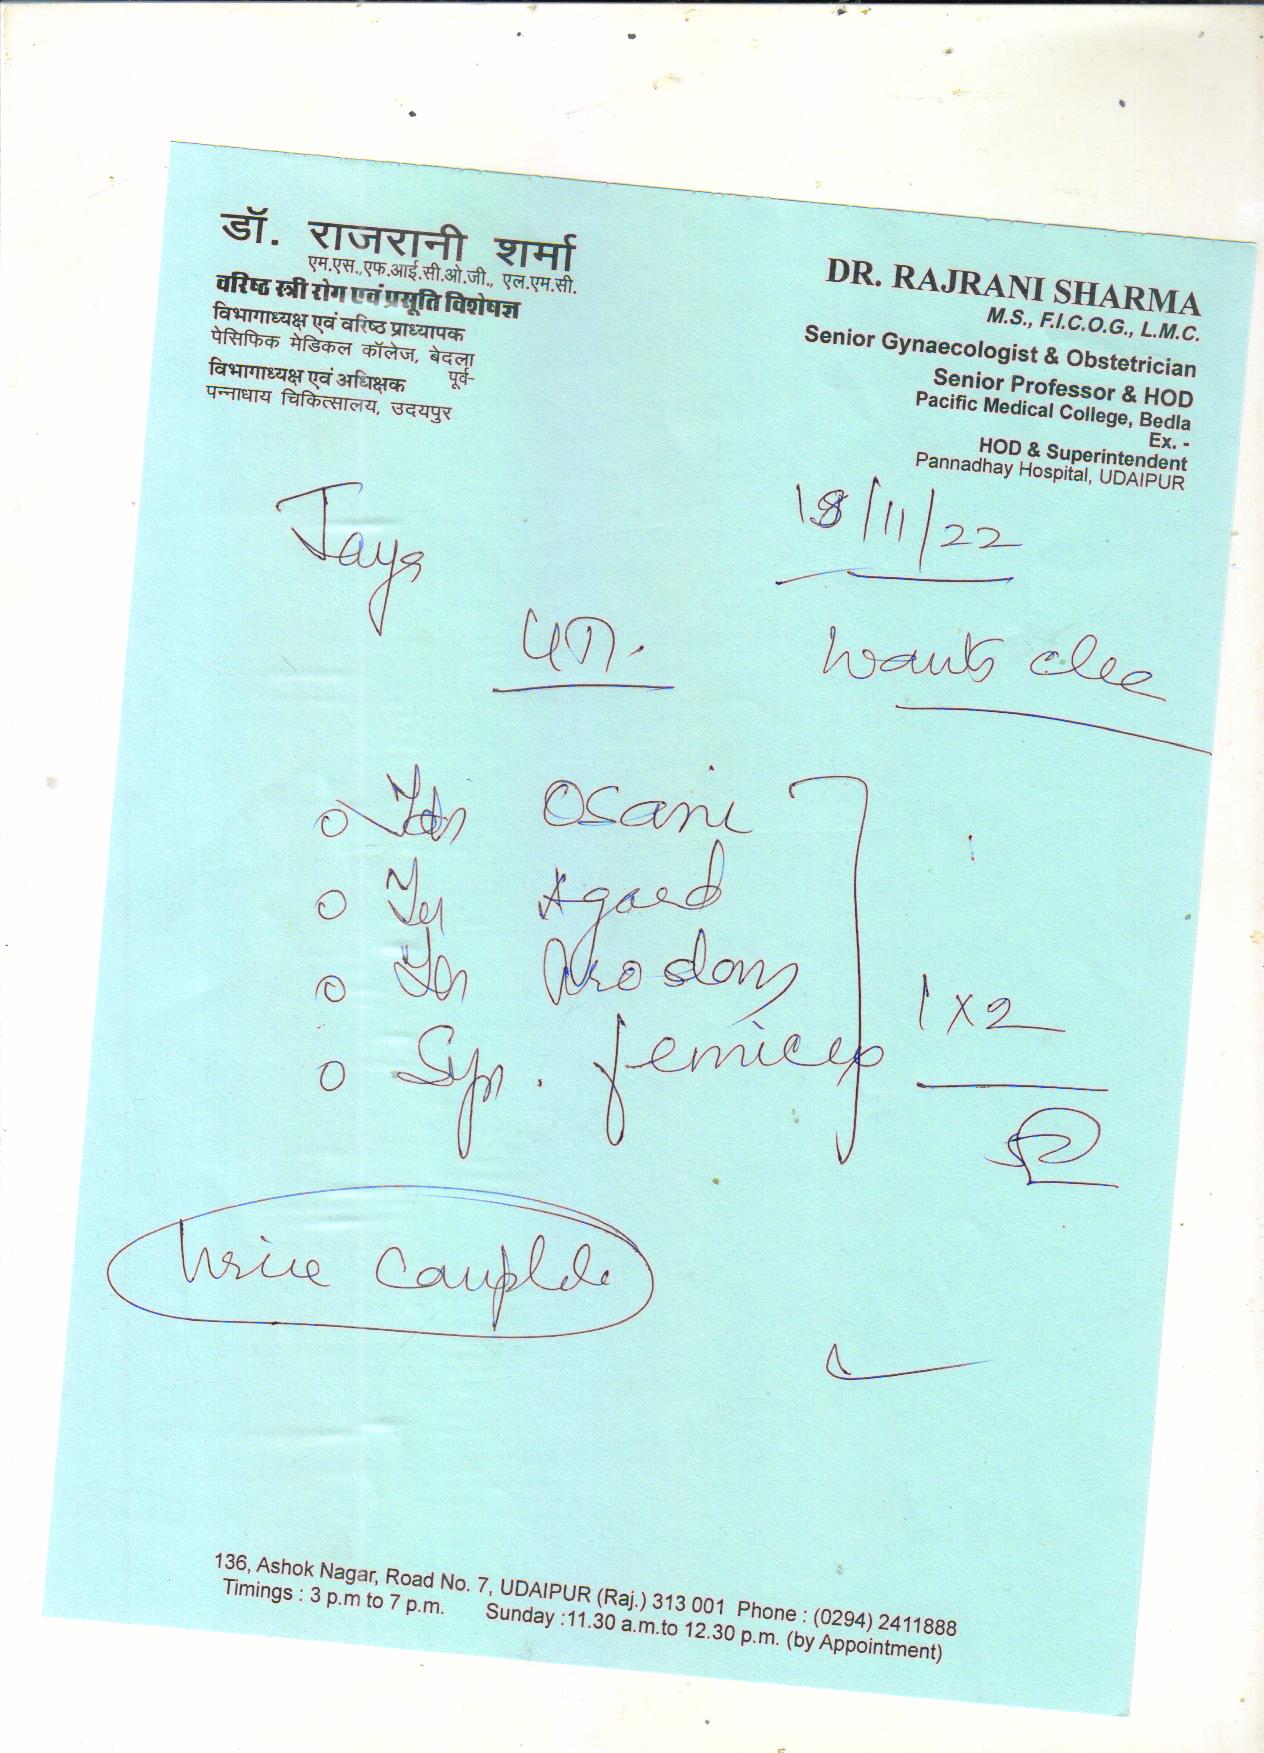 डॉ. राजरानी शर्मा
एम.एस.,एफ.आई.सी.ओ.जी., एल.एम.सी.
वरिष्ठ स्त्री रोग एवं प्रसूति विशेषज्ञ
विभागाध्यक्ष एवं वरिष्ठ प्राध्यापक
पेसिफिक मेडिकल कॉलेज, बेदला
पूर्व-
विभागाध्यक्ष एवं अधिक्षक
पन्नाधाय चिकित्सालय, उदयपुर
DR. RAJRANI SHARMA
M.S., F.I.C.O.G., L.M.C.
Senior Gynaecologist & Obstetrician
Senior Professor & HOD
Pacific Medical College, Bedla
Ex. -
HOD & Superintendent
Pannadhay Hospital, UDAIPUR
18/11/22
wants
Osani
1 x 2
Syp.
Urine Complete
136, Ashok Nagar, Road No. 7, UDAIPUR (Raj.) 313 001 Phone : (0294) 2411888
Timings : 3 p.m to 7 p.m. Sunday :11.30 a.m.to 12.30 p.m. (by Appointment)